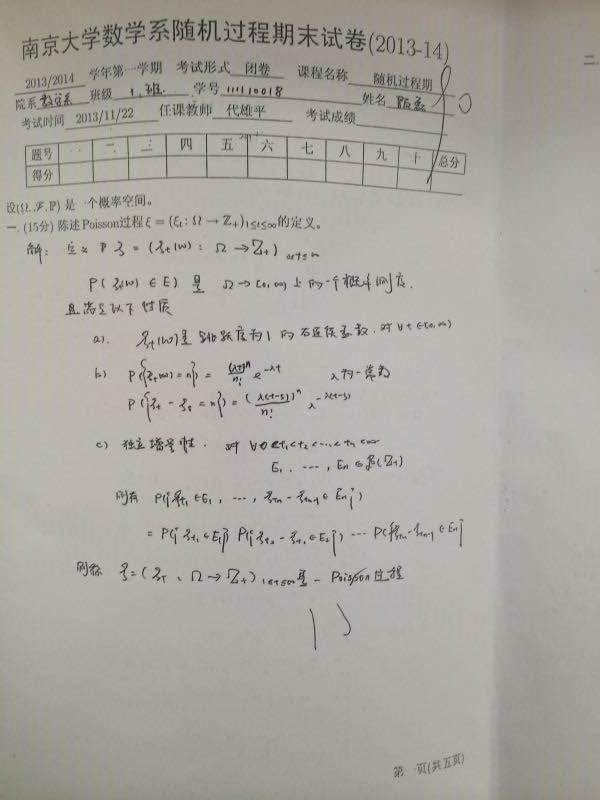 南京大学数学系随机过程期末试卷(2013-14)
2013/2014 学年第一学期 考试形式 闭卷 课程名称 随机过程期
院系 数学系 班级 1班. 学号 111110018 姓名
考试时间 2013/11/22 任课教师 代雄平 考试成绩
80
题号 一 二 三 四 五 六 七 八 九 十 总分
得分
二.
设(Ω, ℱ, ℙ) 是一个概率空间。
一. (15分) 陈述Poisson过程 ξ = (ξt : Ω → ℤ+)1≤t≤∞的定义。
解: 定义 ξ = (ξt(w) : Ω → Z+)0≤t≤∞
P(ξt(w) ∈ E) 是 Ω → [0,∞) 上的一个概率测度.
且满足以下性质
a). ξt(w)是跳跃度为1的右连续函数. 对∀t∈[0,∞)
b) P({ξt(w) = n}) = (λt)^n/n! e^-λt λ为一常数
P({ξt - ξs = n}) = (λ(t-s))^n/n! λ^-λ(t-s)
c) 独立增量性. 对 ∀ 0≤t1<t2<...<tn<∞
E1, ..., En ∈ β(Z+)
则有 P({ξt1 ∈ E1, ..., ξtn - ξtn-1 ∈ En})
= P({ξt1 ∈ E1}) P({ξt2 - ξt1 ∈ E2}) ... P({ξtn - ξtn-1 ∈ En})
则称 ξ = (ξt : Ω → Z+)1≤t≤∞ 是一 Poisson 过程
15
第一页(共五页)